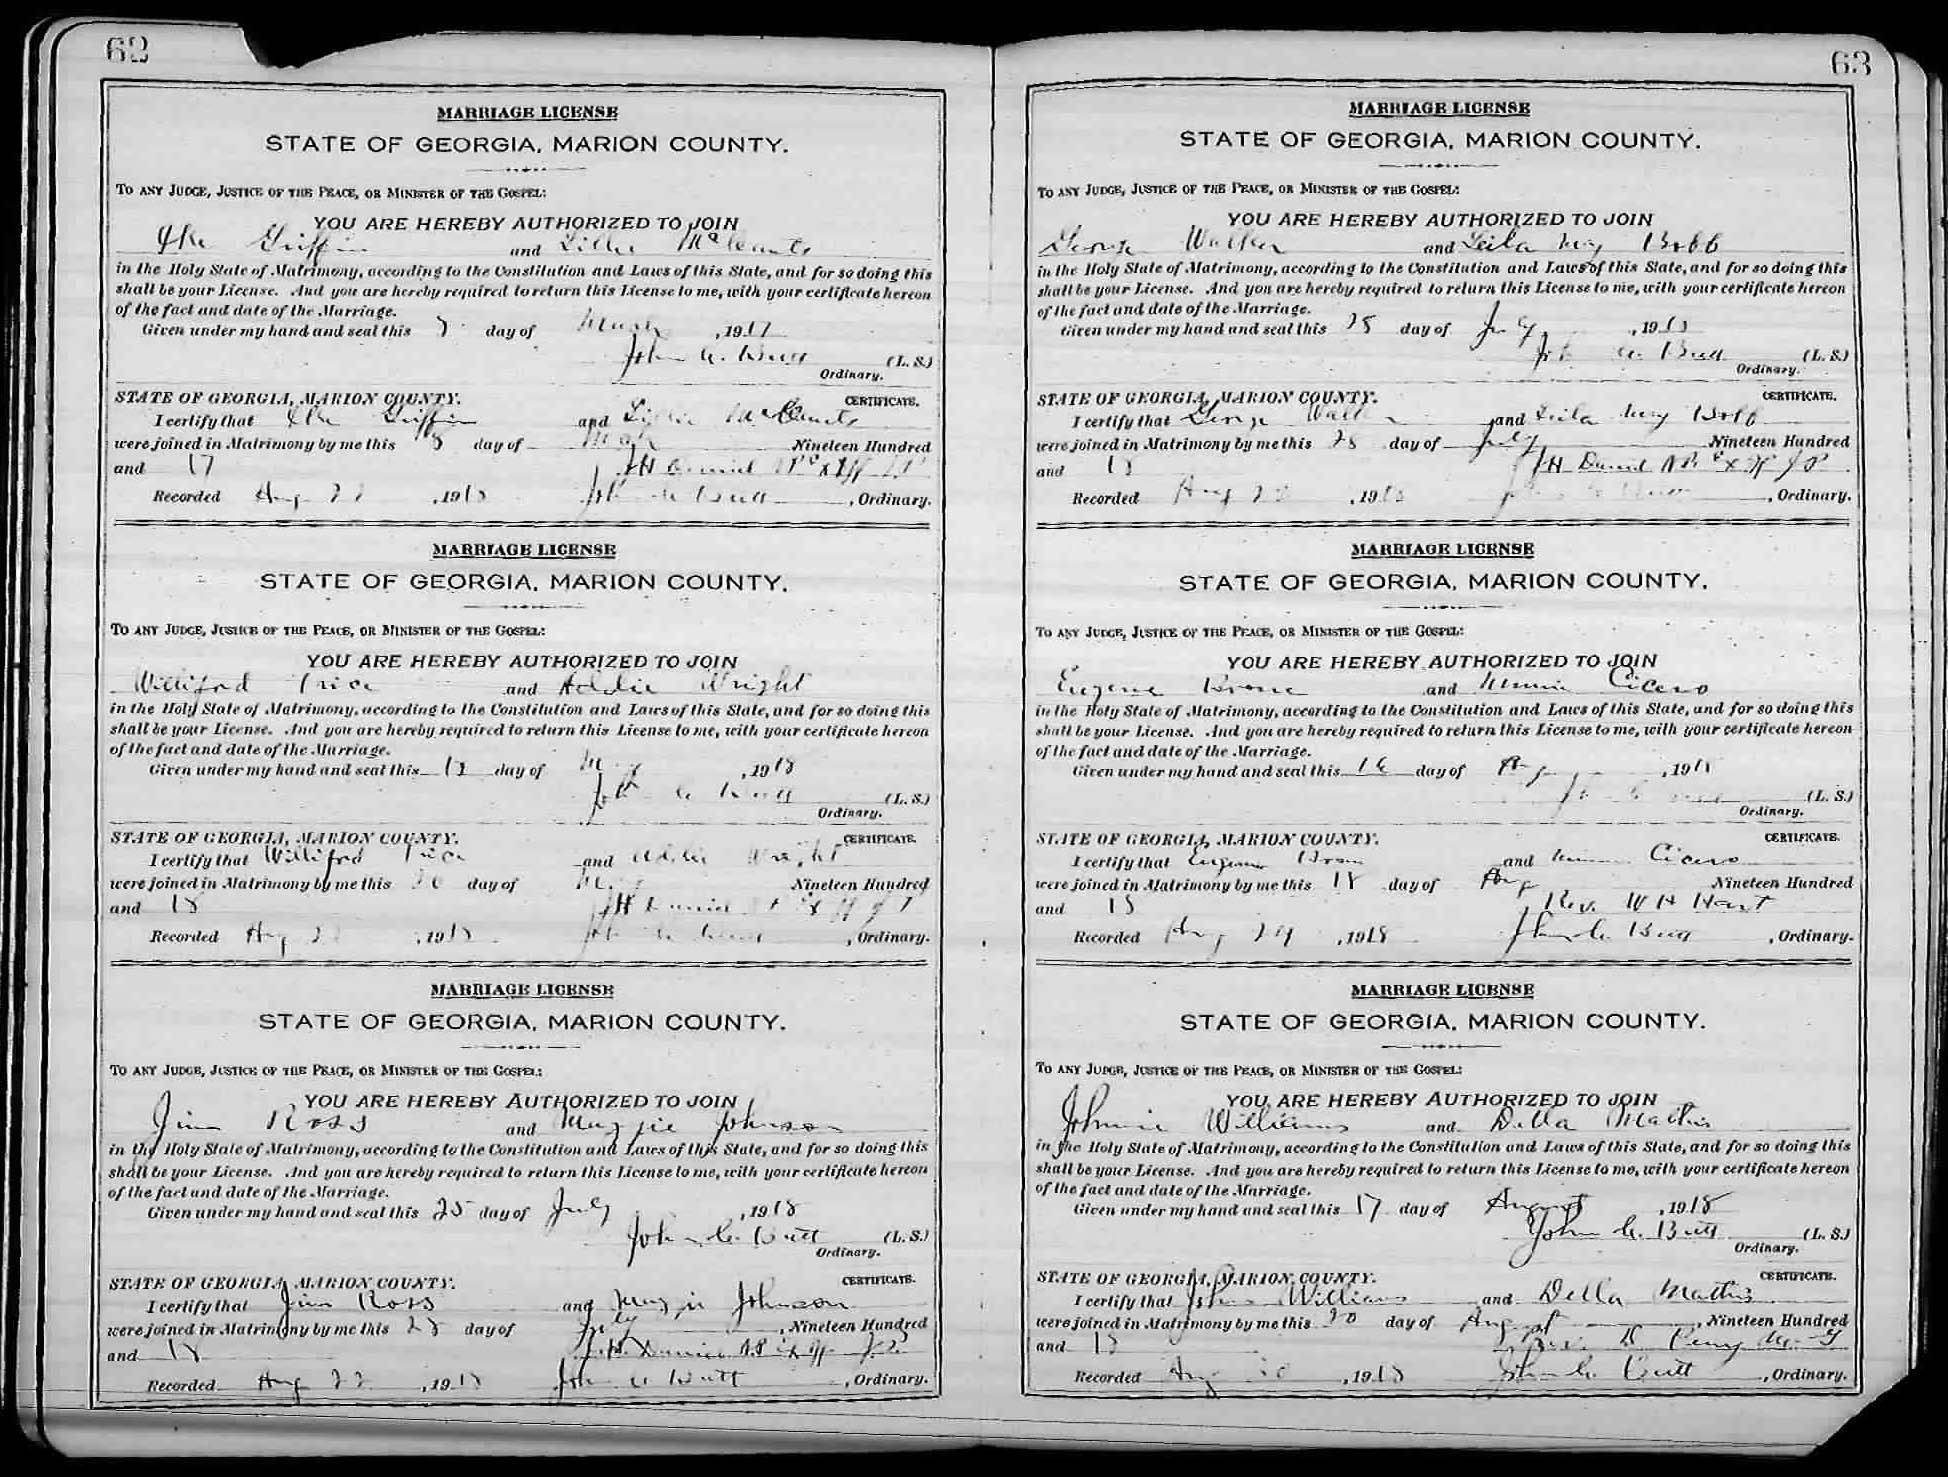 62
MARRIAGE LICENSE
STATE OF GEORGIA, MARION COUNTY.
TO ANY JUDGE, JUSTICE OF THE PEACE, OR MINISTER OF THE GOSPEL:
YOU ARE HEREBY AUTHORIZED TO JOIN
Ike Griffin and Lillie McCants
in the Holy State of Matrimony, according to the Constitution and Laws of this State, and for so doing this
shall be your License. And you are hereby required to return this License to me, with your certificate hereon
of the fact and date of the Marriage.
Given under my hand and seal this day of , 1917
John C. Butt (L. S.)
Ordinary.
STATE OF GEORGIA, MARION COUNTY. CERTIFICATE.
I certify that Ike Griffin and Lillie McCants
were joined in Matrimony by me this 8 day of Nineteen Hundred
and 17 J H Daniel N P & Ex Off J P
Recorded Aug 22, 1918 John C Butt, Ordinary.
MARRIAGE LICENSE
STATE OF GEORGIA, MARION COUNTY.
TO ANY JUDGE, JUSTICE OF THE PEACE, OR MINISTER OF THE GOSPEL:
YOU ARE HEREBY AUTHORIZED TO JOIN
Williford Trice and Addie Wright
in the Holy State of Matrimony, according to the Constitution and Laws of this State, and for so doing this
shall be your License. And you are hereby required to return this License to me, with your certificate hereon
of the fact and date of the Marriage.
Given under my hand and seal this day of , 1918
John C Butt (L. S.)
Ordinary.
STATE OF GEORGIA, MARION COUNTY. CERTIFICATE.
I certify that Williford Trice and Addie Wright
were joined in Matrimony by me this day of Nineteen Hundred
and 18 J H Daniel N P & Ex Off J P
Recorded Aug 22, 1918 John C Butt, Ordinary.
MARRIAGE LICENSE
STATE OF GEORGIA, MARION COUNTY.
TO ANY JUDGE, JUSTICE OF THE PEACE, OR MINISTER OF THE GOSPEL:
YOU ARE HEREBY AUTHORIZED TO JOIN
Jim Ross and Maggie Johnson
in the Holy State of Matrimony, according to the Constitution and Laws of this State, and for so doing this
shall be your License. And you are hereby required to return this License to me, with your certificate hereon
of the fact and date of the Marriage.
Given under my hand and seal this 25 day of July, 1918
John C. Butt (L. S.)
Ordinary.
STATE OF GEORGIA, MARION COUNTY. CERTIFICATE.
I certify that Jim Ross and Maggie Johnson
were joined in Matrimony by me this 28 day of July, Nineteen Hundred
and 18 J H Daniel N P & Ex Off J. P.
Recorded Aug 22, 1918 John C Butt, Ordinary.
63
MARRIAGE LICENSE
STATE OF GEORGIA, MARION COUNTY.
TO ANY JUDGE, JUSTICE OF THE PEACE, OR MINISTER OF THE GOSPEL:
YOU ARE HEREBY AUTHORIZED TO JOIN
George Walker and Leila May Bobb
in the Holy State of Matrimony, according to the Constitution and Laws of this State, and for so doing this
shall be your License. And you are hereby required to return this License to me, with your certificate hereon
of the fact and date of the Marriage.
Given under my hand and seal this 28 day of July, 1918
John C. Butt (L. S.)
Ordinary.
STATE OF GEORGIA, MARION COUNTY. CERTIFICATE.
I certify that George Walker and Leila May Bobb
were joined in Matrimony by me this 28 day of July Nineteen Hundred
and 18 J H Daniel N P & Ex Off J P
Recorded Aug, 1918 John C Butt, Ordinary.
MARRIAGE LICENSE
STATE OF GEORGIA, MARION COUNTY.
TO ANY JUDGE, JUSTICE OF THE PEACE, OR MINISTER OF THE GOSPEL:
YOU ARE HEREBY AUTHORIZED TO JOIN
Eugene and Minnie Cicero
in the Holy State of Matrimony, according to the Constitution and Laws of this State, and for so doing this
shall be your License. And you are hereby required to return this License to me, with your certificate hereon
of the fact and date of the Marriage.
Given under my hand and seal this 16 day of Aug, 1918
John C Butt (L. S.)
Ordinary.
STATE OF GEORGIA, MARION COUNTY. CERTIFICATE.
I certify that Eugene and Minnie Cicero
were joined in Matrimony by me this 18 day of Aug Nineteen Hundred
and 18 Rev. W H Hart
Recorded Aug 24, 1918 John C. Butt, Ordinary.
MARRIAGE LICENSE
STATE OF GEORGIA, MARION COUNTY.
TO ANY JUDGE, JUSTICE OF THE PEACE, OR MINISTER OF THE GOSPEL:
YOU ARE HEREBY AUTHORIZED TO JOIN
Johnnie Williams and Della Mathis
in the Holy State of Matrimony, according to the Constitution and Laws of this State, and for so doing this
shall be your License. And you are hereby required to return this License to me, with your certificate hereon
of the fact and date of the Marriage.
Given under my hand and seal this 17 day of August, 1918
John C. Butt (L. S.)
Ordinary.
STATE OF GEORGIA, MARION COUNTY. CERTIFICATE.
I certify that Johnie Williams and Della Mathis
were joined in Matrimony by me this 20 day of August, Nineteen Hundred
and 18 Rev. D Perry M. G
Recorded Aug, 1918 John C. Butt, Ordinary.